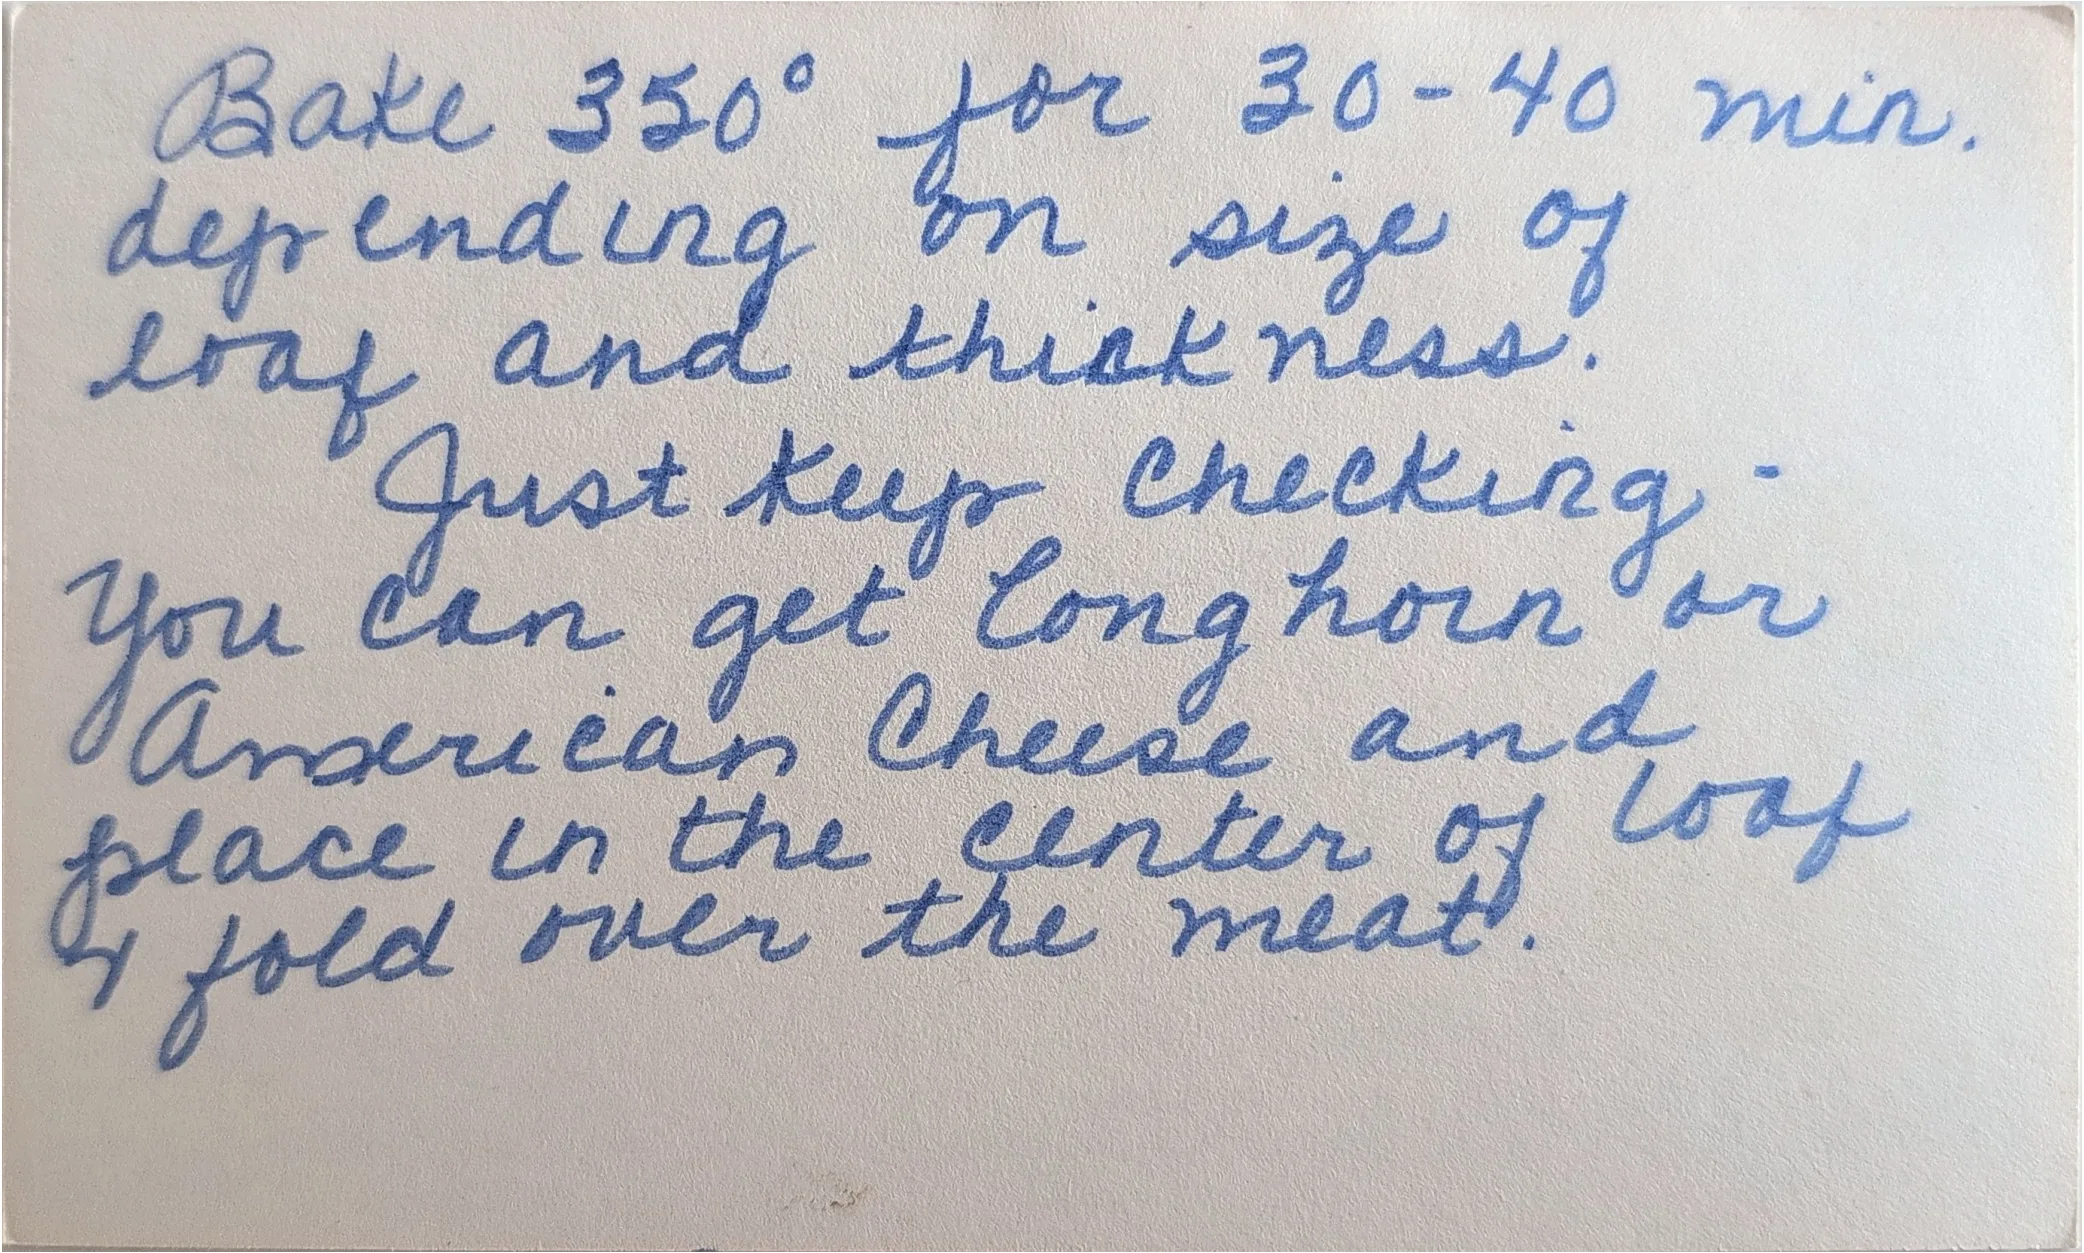 Bake 350° for 30-40 min.
depending on size of
loaf and thickness.
Just keep checking -
You can get longhorn or
American Cheese and
place in the center of loaf
& fold over the meat.